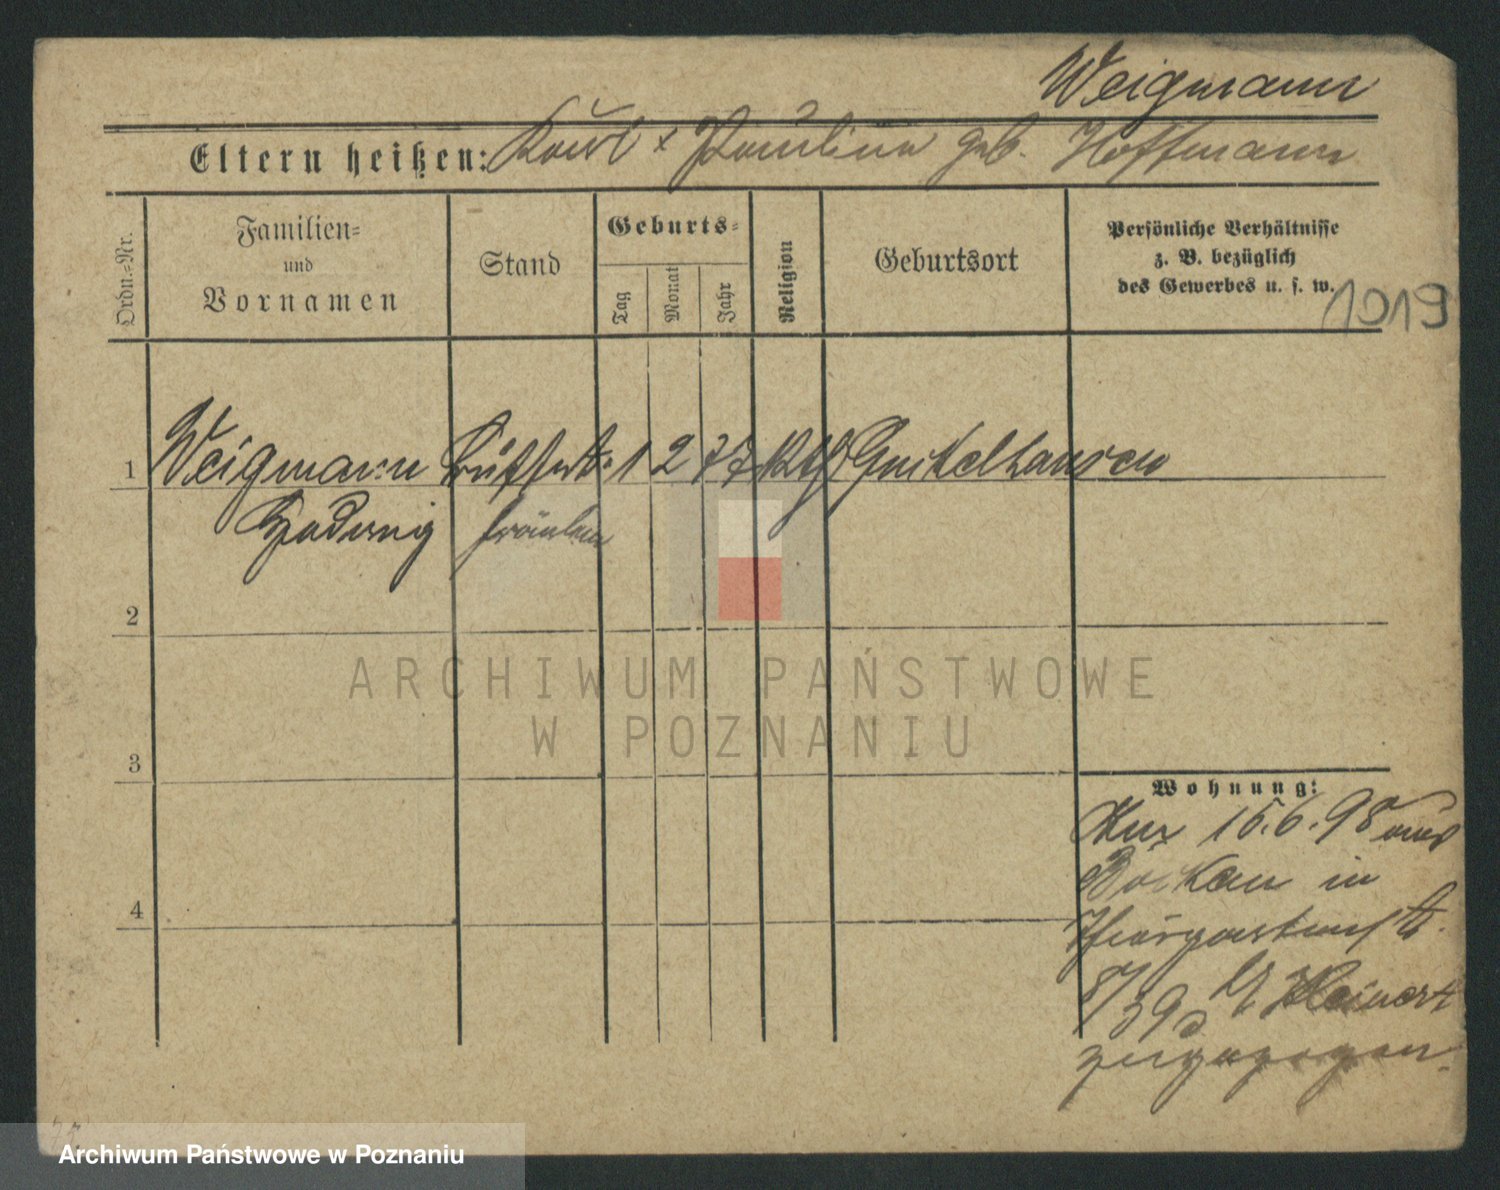 Weigmann
Eltern heißen: Karl & Paulina geb. Hoffmann
Ordn.=Nr.
Familien=
und
Vornamen
Stand
Geburts=
Tag
Monat
Jahr
Religion
Geburtsort
Persönliche Verhältnisse
z. B. bezüglich
des Gewerbes u. s. w.
1019
1 Weigmann 1 2 77 kth
Hedwig fräulein
2
ARCHIWUM PAŃSTWOWE
W POZNANIU
3
Wohnung:
15.6.98 aus
in
Thiergartenstr.
4
39a Kleinert
zugezogen.
Archiwum Państwowe w Poznaniu